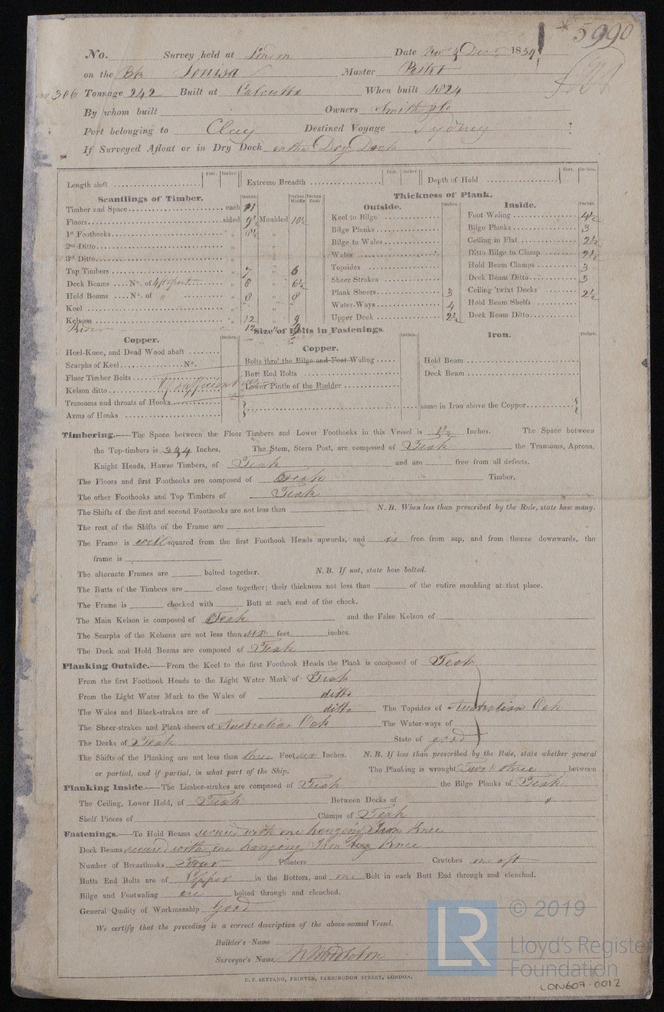 5990
No. Survey held at London Date Dec 1839
on the Bk Louisa Master
306 Tonnage 242 Built at Calcutta When built 1824
By whom built Owners Smith & Co
Port belonging to Destined Voyage Sydney
If Surveyed Afloat or in Dry Dock in the Dry Dock
Length aloft Extreme Breadth Depth of Hold
Scantlings of Timber. Thickness of Plank.
Outside. Inside.
Timber and Space each 21
Floors sided 9½ Moulded 10½
1st Foothooks
2nd Ditto
3rd Ditto
Top Timbers 7 6
Deck Beams No. of 6 6½
Hold Beams No. of 8 8
Keel
Kelsons 12 9
Keel to Bilge
Bilge Planks
Bilge to Wales
Wales
Topsides
Sheer Strakes
Plank Sheers 3
Water-Ways 4
Upper Deck 2½
Foot Waling 4½
Bilge Planks 3
Ceiling in Flat 2½
Ditto Bilge to Clamp 2½
Hold Beam Clamps 3
Deck Beam Ditto 3
Ceiling 'twixt Decks 2½
Hold Beam Shelfs
Deck Beam Ditto
Size of Bolts in Fastenings.
Copper. Copper. Iron.
Heel-Knee, and Dead Wood abaft
Scarphs of Keel No.
Floor Timber Bolts
Kelson ditto
Transoms and throats of Hooks
Arms of Hooks
Bolts thro' the Bilge and Foot Waling
Butt End Bolts
Lower Pintle of the Rudder
Hold Beam
Deck Beam
same in Iron above the Copper
Timbering.—The Space between the Floor Timbers and Lower Foothooks in this Vessel is 1½ Inches. The Space between
the Top-timbers is 3 & 4 Inches. The Stem, Stern Post, are composed of Teak the Transoms, Aprons,
Knight Heads, Hawse Timbers, of Teak and are free from all defects.
The Floors and first Foothooks are composed of Teak Timber.
The other Foothooks and Top Timbers of Teak
The Shifts of the first and second Foothooks are not less than N.B. When less than prescribed by the Rule, state how many.
The rest of the Shifts of the Frame are
The Frame is well squared from the first Foothook Heads upwards, and is free from sap, and from thence downwards, the
frame is
The alternate Frames are bolted together. N.B. If not, state how bolted.
The Butts of the Timbers are close together; their thickness not less than of the entire moulding at that place.
The Frame is chocked with Butt at each end of the chock.
The Main Kelson is composed of Teak and the False Kelson of
The Scarphs of the Kelsons are not less than six feet inches.
The Deck and Hold Beams are composed of Teak
Planking Outside.—From the Keel to the first Foothook Heads the Plank is composed of Teak
From the first Foothook Heads to the Light Water Mark of Teak
From the Light Water Mark to the Wales of ditto
The Wales and Black-strakes are of ditto The Topsides of Australian Oak
The Sheer-strakes and Plank-sheers of Australian Oak The Water-ways of
The Decks of Teak State of good
The Shifts of the Planking are not less than three Feet six Inches. N.B. If less than prescribed by the Rule, state whether general
or partial, and if partial, in what part of the Ship. The Planking is wrought two & three between
Planking Inside.—The Limber-strakes are composed of Teak the Bilge Planks of Teak
The Ceiling, Lower Hold, of Teak Between Decks of "
Shelf Pieces of Clamps of Teak
Fastenings.—To Hold Beams secured with one hanging Iron Knee
Deck Beams secured with one hanging Iron Knee
Number of Breasthooks four Pointers Crutches one aft
Butts End Bolts are of Copper in the Bottom, and one Bolt in each Butt End through and clenched.
Bilge and Footwaling are bolted through and clenched.
General Quality of Workmanship good
We certify that the preceding is a correct description of the above-named Vessel.
Builder's Name
Surveyor's Name N Middleton
C. F. SEYFANG, PRINTER, FARRINGDON STREET, LONDON.
LR © 2019
Lloyd's Register
Foundation
LON607-0012